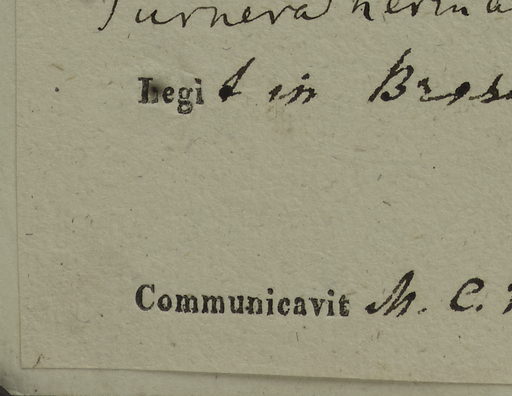 Turnera herm
Legit in Bras
Communicavit M. C.